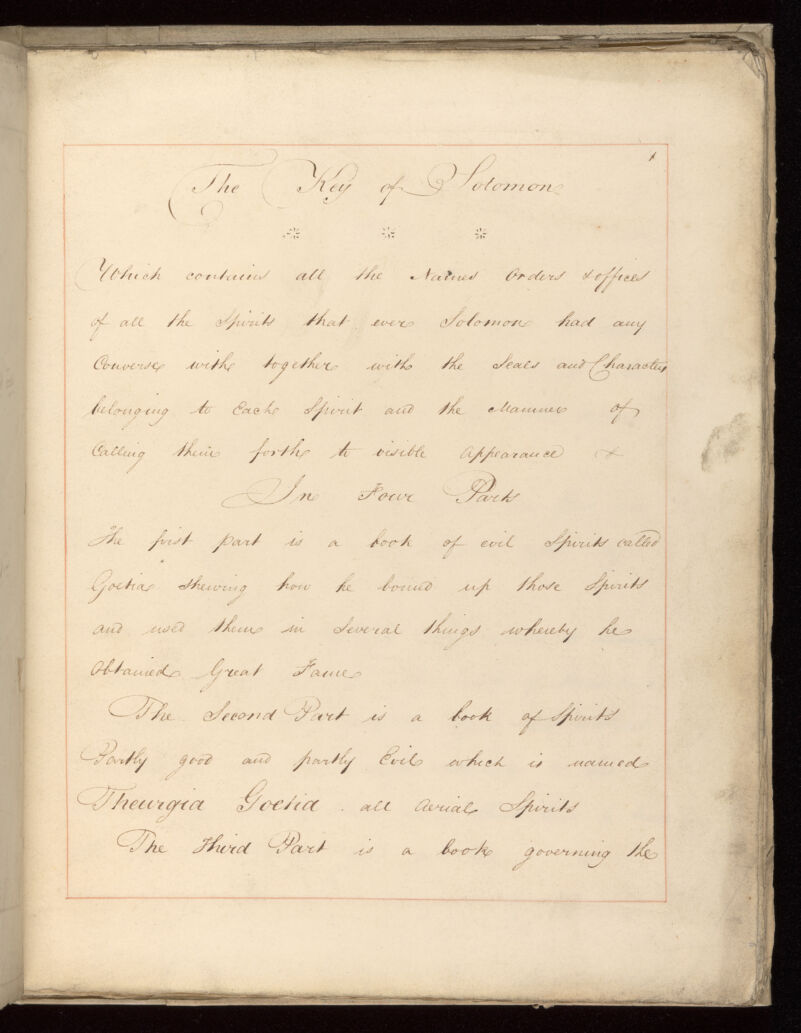 1
The Key of Solomon
Which contains all the Names Orders & offices
of all the Spirits that ever Solomon had any
Converse with together with the Seals and Characters
belonging to Each Spirit and the Manner of
Calling them forth to visible Appearance &
In Four Parts
The first part is a book of evil Spirits called
Goetia shewing how he bound up those Spirits
and used them in Several things whereby he
Obtained Great Fame
The Second Part is a book of Spirits
Partly good and partly Evil which is named
Theurgia Goetia . all Aerial Spirits
The Third Part is a book governing the